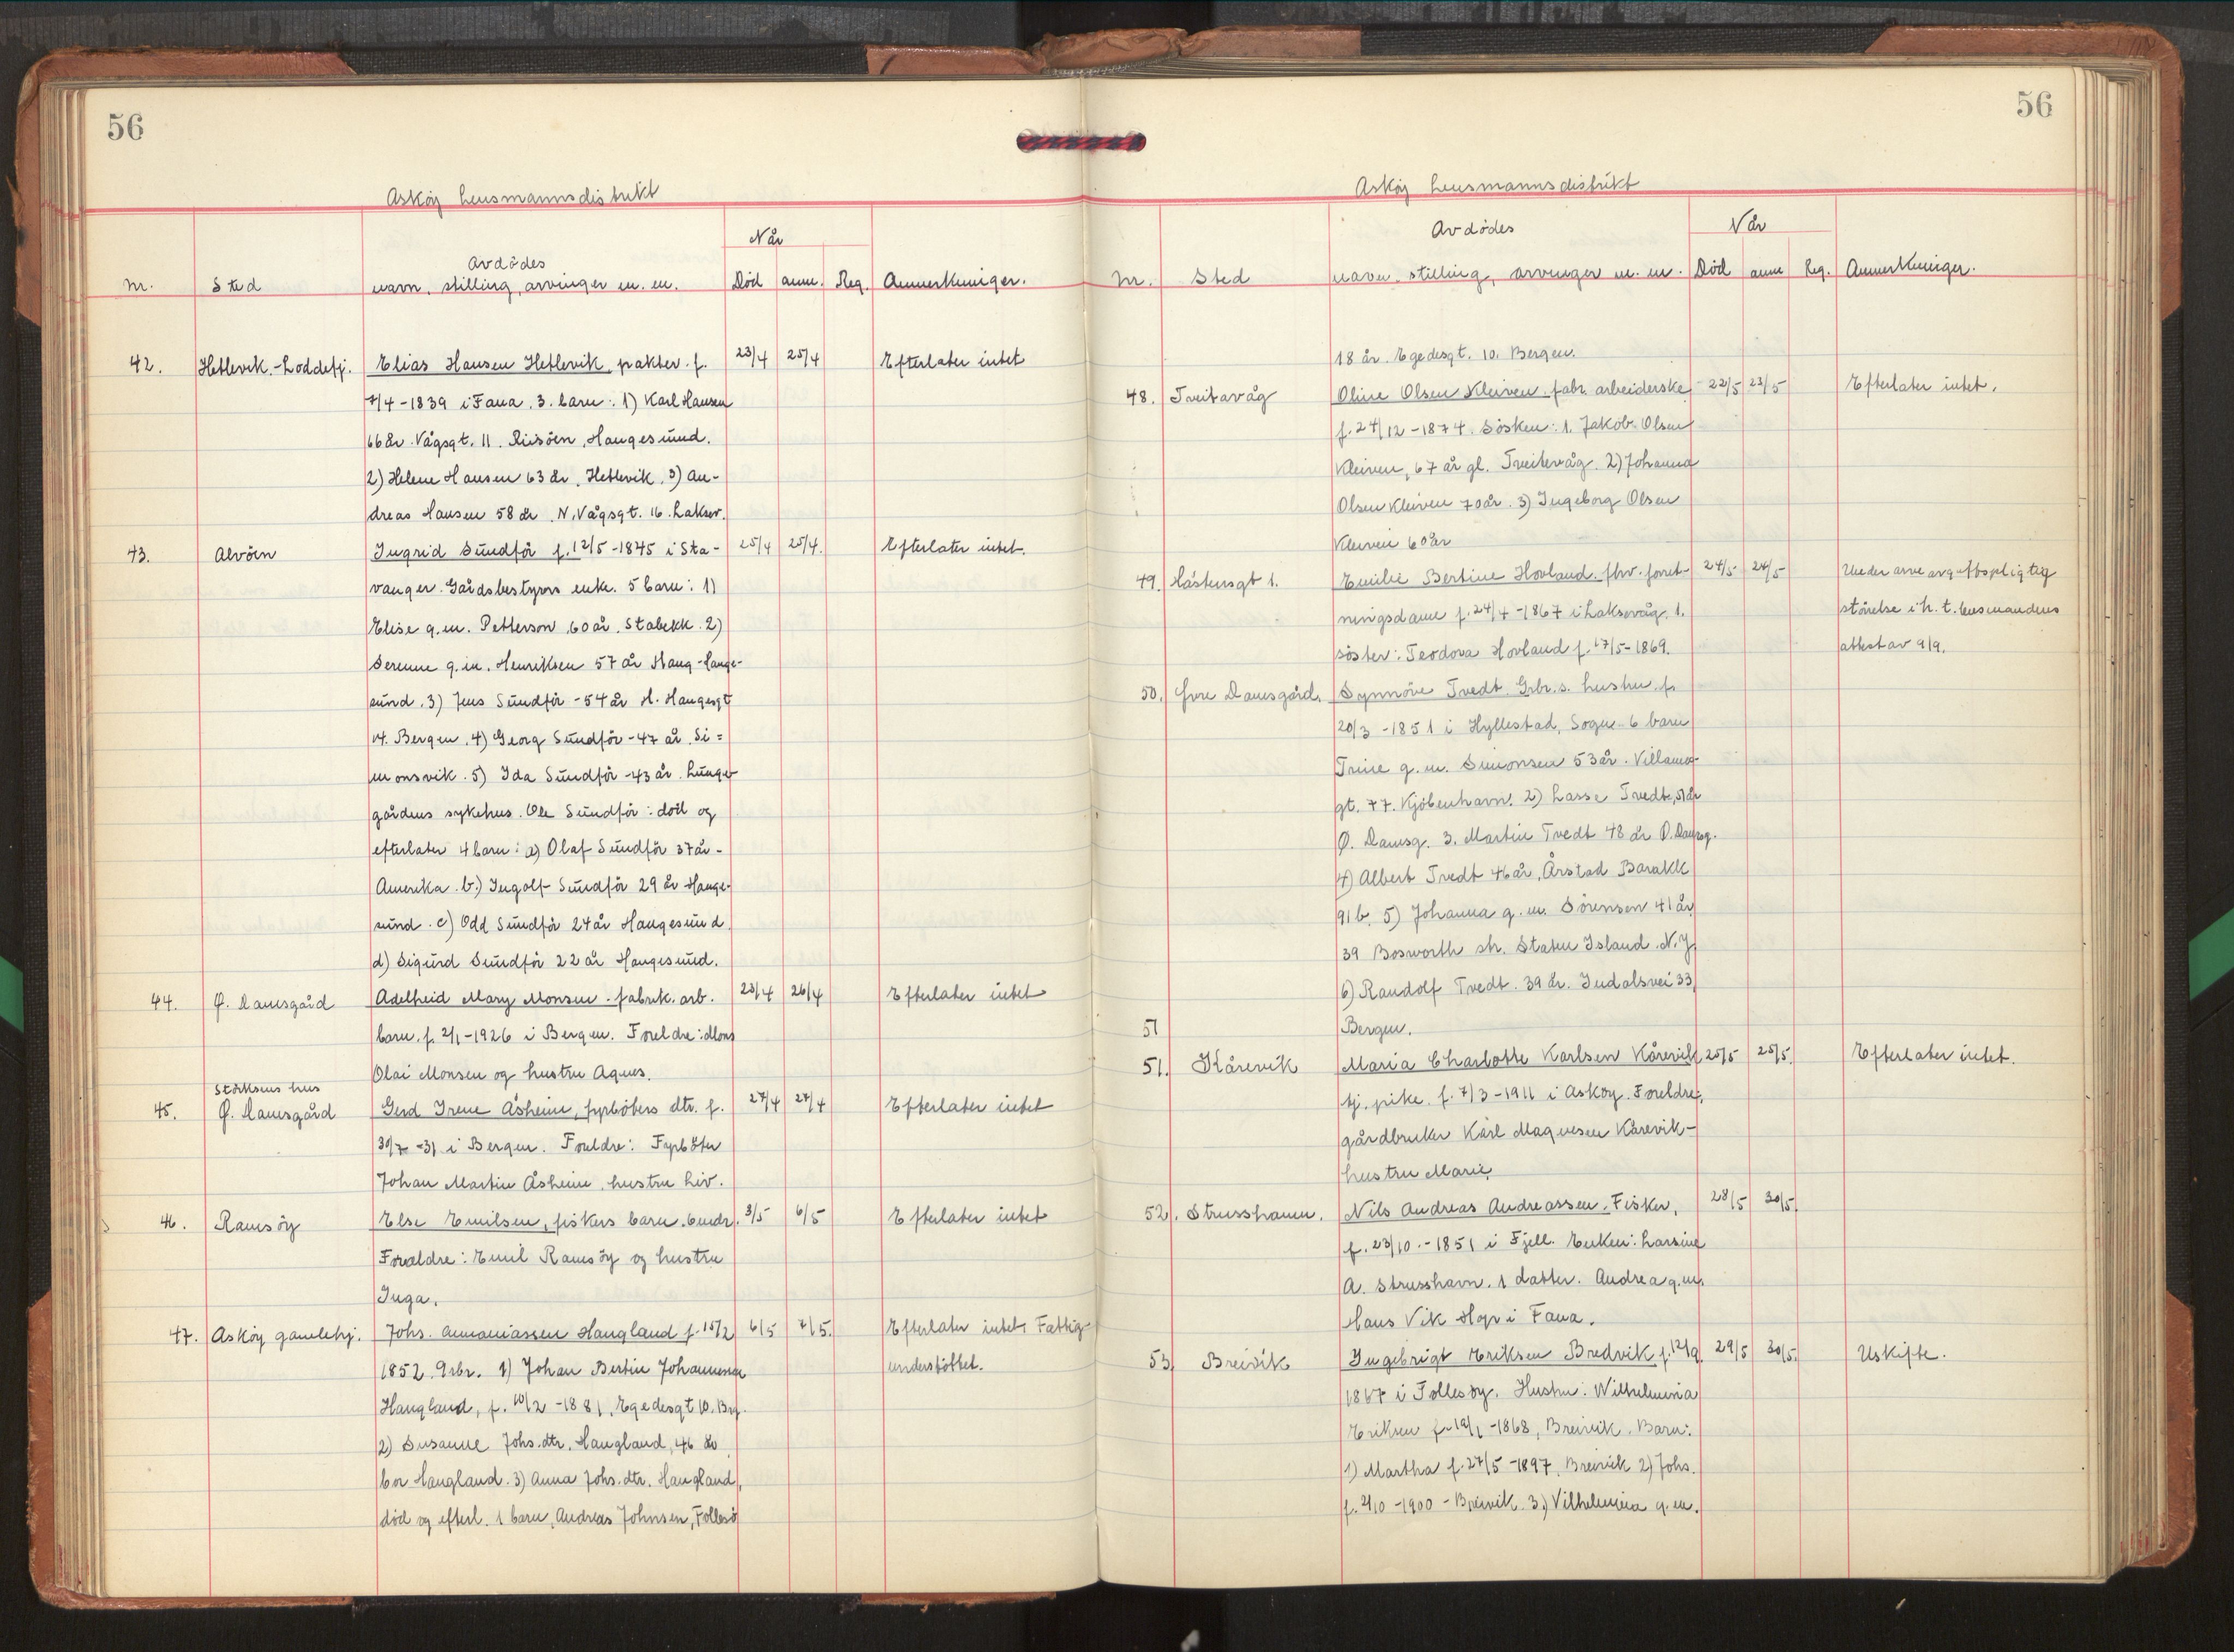 56
Askøy lensmannsdistrikt
Når
Avdødes
nr.
Sted
navn, stilling, arvinger m. m.
Død
anm.
Reg.
Anmerkninger.
42.
Hetlevik.-Loddefj.
Elias Hansen Hetlevik, f.
23/4
25/4
Efterlater intet
7/4-1839 i Fana. 3. barn: 1) Karl Hansen
66 år. Vågsgt. 11. Risöen, Haugesund.
2) Helene Hansen 63 år, Hetlevik, 3) An-
dreas Hansen 58 år. N. Vågsgt. 16. Laksev.
43.
Alvöen
Ingrid Sündför f. 12/5-1845 i Sta-
25/4
25/4.
Efterlater intet.
vanger. Gårdsbestyrers enke. 5 barn: 1)
Elise g.m. Petterson, 60 år, Stabekk. 2)
Serenne g.m. Henriksen 57 år Haug-Hauge-
sünd. 3) Jens Sündför - 54 år H. Haugesgt
14. Bergen. 4) Georg Sündför - 47 år. Si=
monsvik. 5) Ida Sündför - 43 år. Lünge-
gårdens sykehus. Ole Sündför: död og
efterlater 4 barn: a) Olaf Sündför 37 år -
Amerika. b.) Ingolf Sündför 29 år Hauge-
sünd. c) Odd Sündför 24 år Haugesünd.
d) Sigürd Sündför 22 år Haugesund.
44.
Ø. Damsgård
Adelheid Mary Monsen. fabrik. arb.
23/4
26/4
Efterlater intet
barn. f. 2/1-1926 i Bergen. Foreldre: Mons
Olai Monsen og hustru Agnes.
Störksens hus
45.
Ø. Damsgård
Gerd Irene Åsheim, fyrböters dtr. f.
27/4
27/4
Efterlater intet
30/7-31 i Bergen. Foreldre: Fyrböter
Johan Martin Åsheim, hustru Liv.
46.
Ramsöy
Else Emilsen, fiskers barn. 6 mdr.
3/5
6/5
Efterlater intet
Foreldre: Emil Ramsöy og hustru
Inga.
47.
Askøy gamlehj.
Johs. Annaniassen Haugland f. 15/2
6/5
7/5.
Efterlater intet, Fattig-
1852. Grbr. 1) Johan Bertin Johannesen
understöttet.
Haugland, f. 10/2-1881, Egedesgt 10. Brg.
2) Susanne Johs.dtr. Haugland, 46 år
bor Haugland. 3) Anna Johs.dtr. Haugland,
död og efterl. 1 barn, Andreas Johnsen, Follesö
56
Askøy lensmannsdistrikt
Avdødes
Når
nr.
Sted
navn, stilling, arvinger m. m.
Død
anm
Reg.
Anmerkninger.
18 år. Egedesgt. 10. Bergen.
48.
Tveitavåg
Oline Olsen Kleiven. fabr. arbeiderske
22/5
23/5
Efterlater intet.
f. 24/12-1874. Sösken: 1. Jakob Olsen
Kleiven, 67 år gl. Tveitevåg. 2) Johanna
Olsen Kleiven 70 år. 3) Ingeborg Olsen
Kleiven 60 år
49.
1.
Emilie Bertine Hovland. fhv. forret-
24/5
24/5
Under arveavgiftspligtig
ningsdame f. 24/4-1867 i Laksevåg. 1.
störelse i h. t. lensmandens
söster: Teodora Hovland f. 17/5-1869.
attest av 9/9.
50.
Øvre Damsgård.
Synnöve Tvedt. Grbr.s. hustru, f.
20/3-1851 i Hyllestad, Sogn. 6 barn
Trine g. m. Simonsen 53 år.
gt. 77. Kjöbenhavn. 2) Lasse Tvedt, 51 år
Ø. Damsg. 3. Martin Tvedt 48 år Ø. Damsg.
4) Albert Tvedt 46 år, Årstad Barakk
91 b. 5) Johanna g. m. Sörensen 41 år
39 Bosworth str. Staten Island. N.J.
6) Randolf Tvedt. 39 år. Indalsvei 33
51
Bergen.
51.
Kårevik
Maria Charlotte Karlsen Kårevik
25/5
25/5.
Efterlater intet.
tj. pike. f. 7/3-1911 i Askøy. Foreldre,
gårdbruker Karl Magnesen Kårevik-
hustru Marie.
52.
Strusshamn.
Nils Andreas Andreassen, Fisker,
28/5
30/5
f. 23/10.-1851 i Fjell. Enken: Larsine
A. Strusshavn. 1 datter. Andrea g.m.
Hans Vik Hop i Fana.
53
Breivik
Ingebrigt Eriksen Bredvik f. 12/9
29/5
30/5.
Uskifte.
1867 i Follesøy. Hustru: Wilhelmina
Eriksen f. 19/1-1868, Breivik. Barn:
1) Martha f. 27/5-1897, Breivik 2) Johs.
f. 4/10-1900 - Breivik. 3.) Vilhelmina g. m.